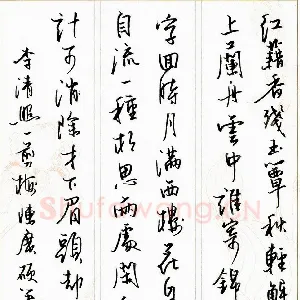 红藕香残玉簟秋轻解
上兰舟云中谁寄锦
字回时月满西楼花自
自流一种相思两处闲
计可消除才下眉头却
李清照一剪梅陈广硕
Shufawang.CN